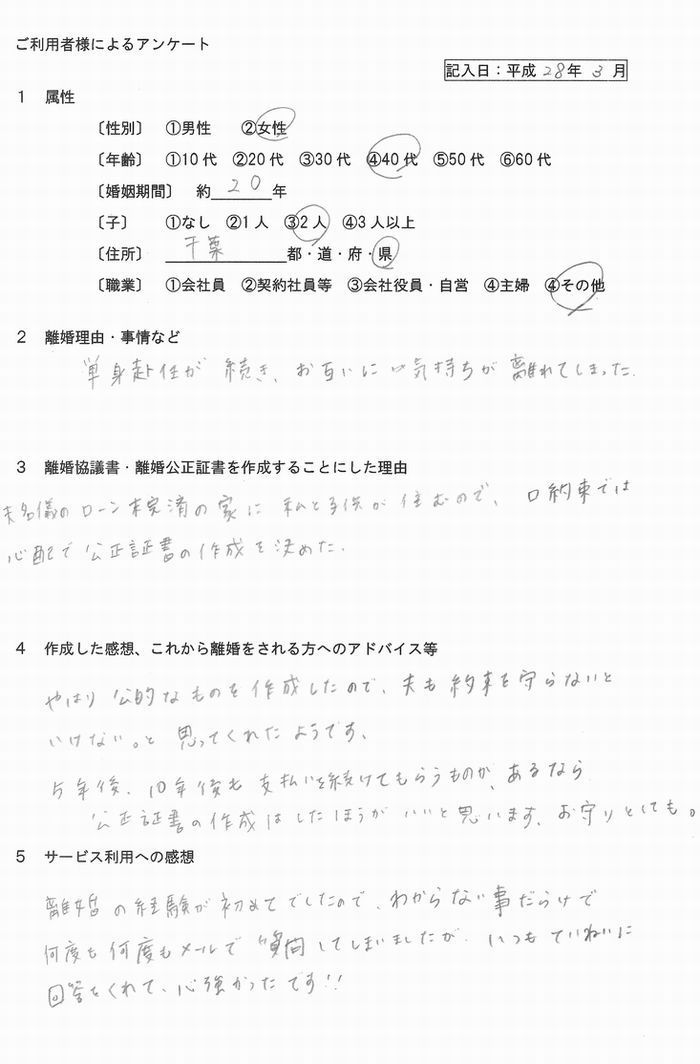 ご利用者様によるアンケート
記入日：平成 28年 3 月
1 属性
〔性別〕 ①男性 ②女性
〔年齢〕 ①10代 ②20代 ③30代 ④40代 ⑤50代 ⑥60代
〔婚姻期間〕 約 20 年
〔子〕 ①なし ②1人 ③2人 ④3人以上
〔住所〕 千葉 都・道・府・県
〔職業〕 ①会社員 ②契約社員等 ③会社役員・自営 ④主婦 ④その他
2 離婚理由・事情など
単身赴任が 続き、お互いに 気持ちが 離れてしまった.
3 離婚協議書・離婚公正証書を作成することにした理由
夫名儀のローン未完済の家に 私と子供が 住むので、口約束では
心配で 公正証書の作成を決めた.
4 作成した感想、これから離婚をされる方へのアドバイス等
やはり 公的なものを作成したので、夫も約束を守らないと
いけない。と 思ってくれたようです、
5年後、10年後も 支払いを続けてもらうものが、あるなら
公正証書の作成はしたほうが いいと思います、お守りとしても。
5 サービス利用への感想
離婚の経験が初めてでしたので、わからない事だらけで
何度も何度もメールで 質問してしまいましたが、いつも ていねいに
回答をくれて、心強かったです!!